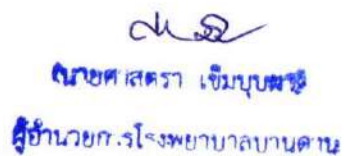 นายศาสตรา เข็มบุบผา
ผู้อำนวยการโรงพยาบาลบานดาน